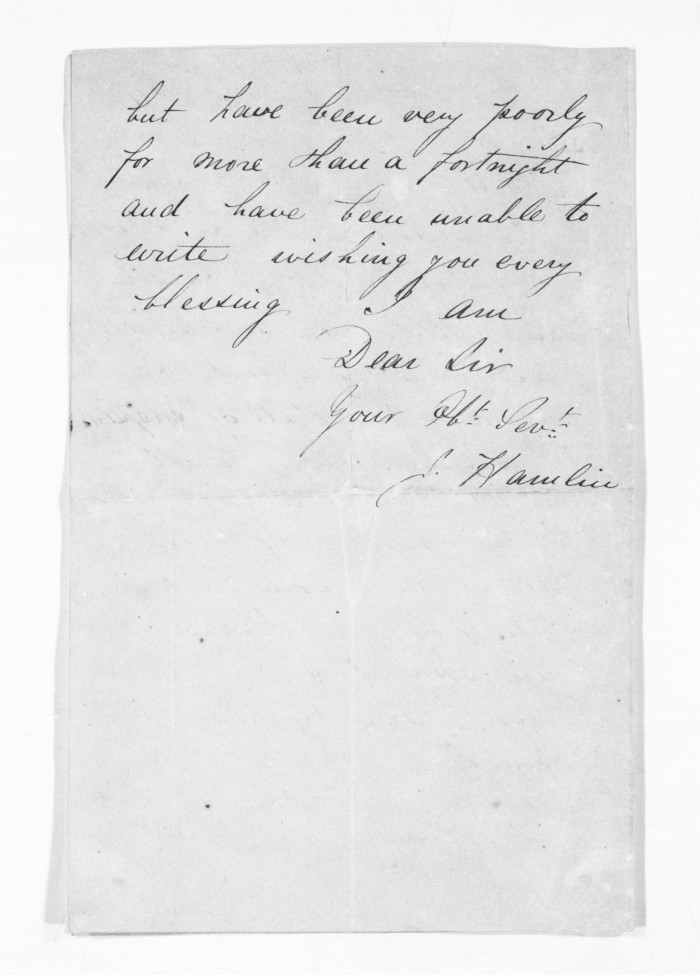 but have been very poorly
for more than a fortnight
and have been unable to
write wishing you every
blessing I am
Dear Sir
Your Obt. Servt.
J. Hamlin